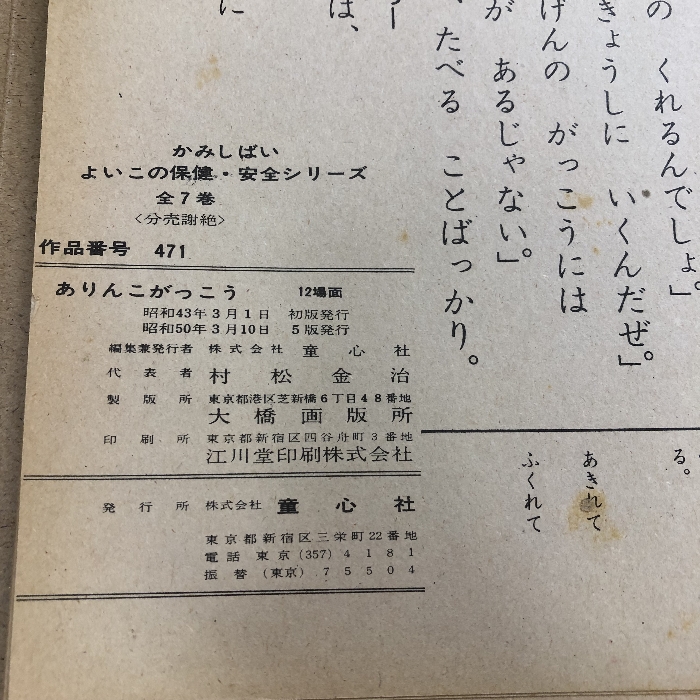 の　くれるんでしょ。」
きょうしに　いくんだぜ。」
げんの　がっこうには
が　あるじゃない。」
、たべる　ことばっかり。
ー
は、
に
る。
あきれて
ふくれて
かみしばい
よいこの保健・安全シリーズ
全7巻
〈分売謝絶〉
作品番号　471
ありんこがっこう　12場面
昭和43年3月1日　初版発行
昭和50年3月10日　5版発行
編集兼発行者　株式会社　童心社
代表者　村松金治
製版所　東京都港区芝新橋6丁目48番地
大橋画版所
印刷所　東京都新宿区四谷舟町3番地
江川堂印刷株式会社
発行所　株式会社　童心社
東京都新宿区三栄町22番地
電話　東京(357)4181
振替（東京）75504